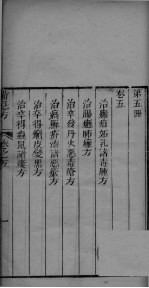 第五冊
卷五
治癰疽妬乳諸毒腫方
治腸癰肺癰方
治卒發丹火惡毒瘡方
治瘑癬疥漆瘡諸惡瘡方
治卒得癩皮變黑方
治卒得蟲鼠諸瘻方